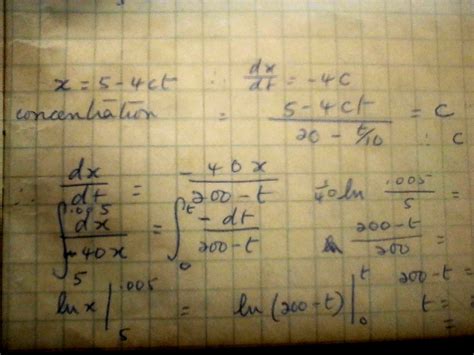 x = 5 - 4ct ∴ dx/dt = -4c
concentration = (5 - 4ct)/(20 - t/10) = C
∴ C
∴ dx/dt = -40x/(200 - t)
1/40 ln .005/5 =
∫_5^.005 dx/-40x = ∫_0^t -dt/(200 - t)
(200 - t)/200 =
ln x |_5^.005 = ln (200 - t) |_0^t
200 - t =
t =
=